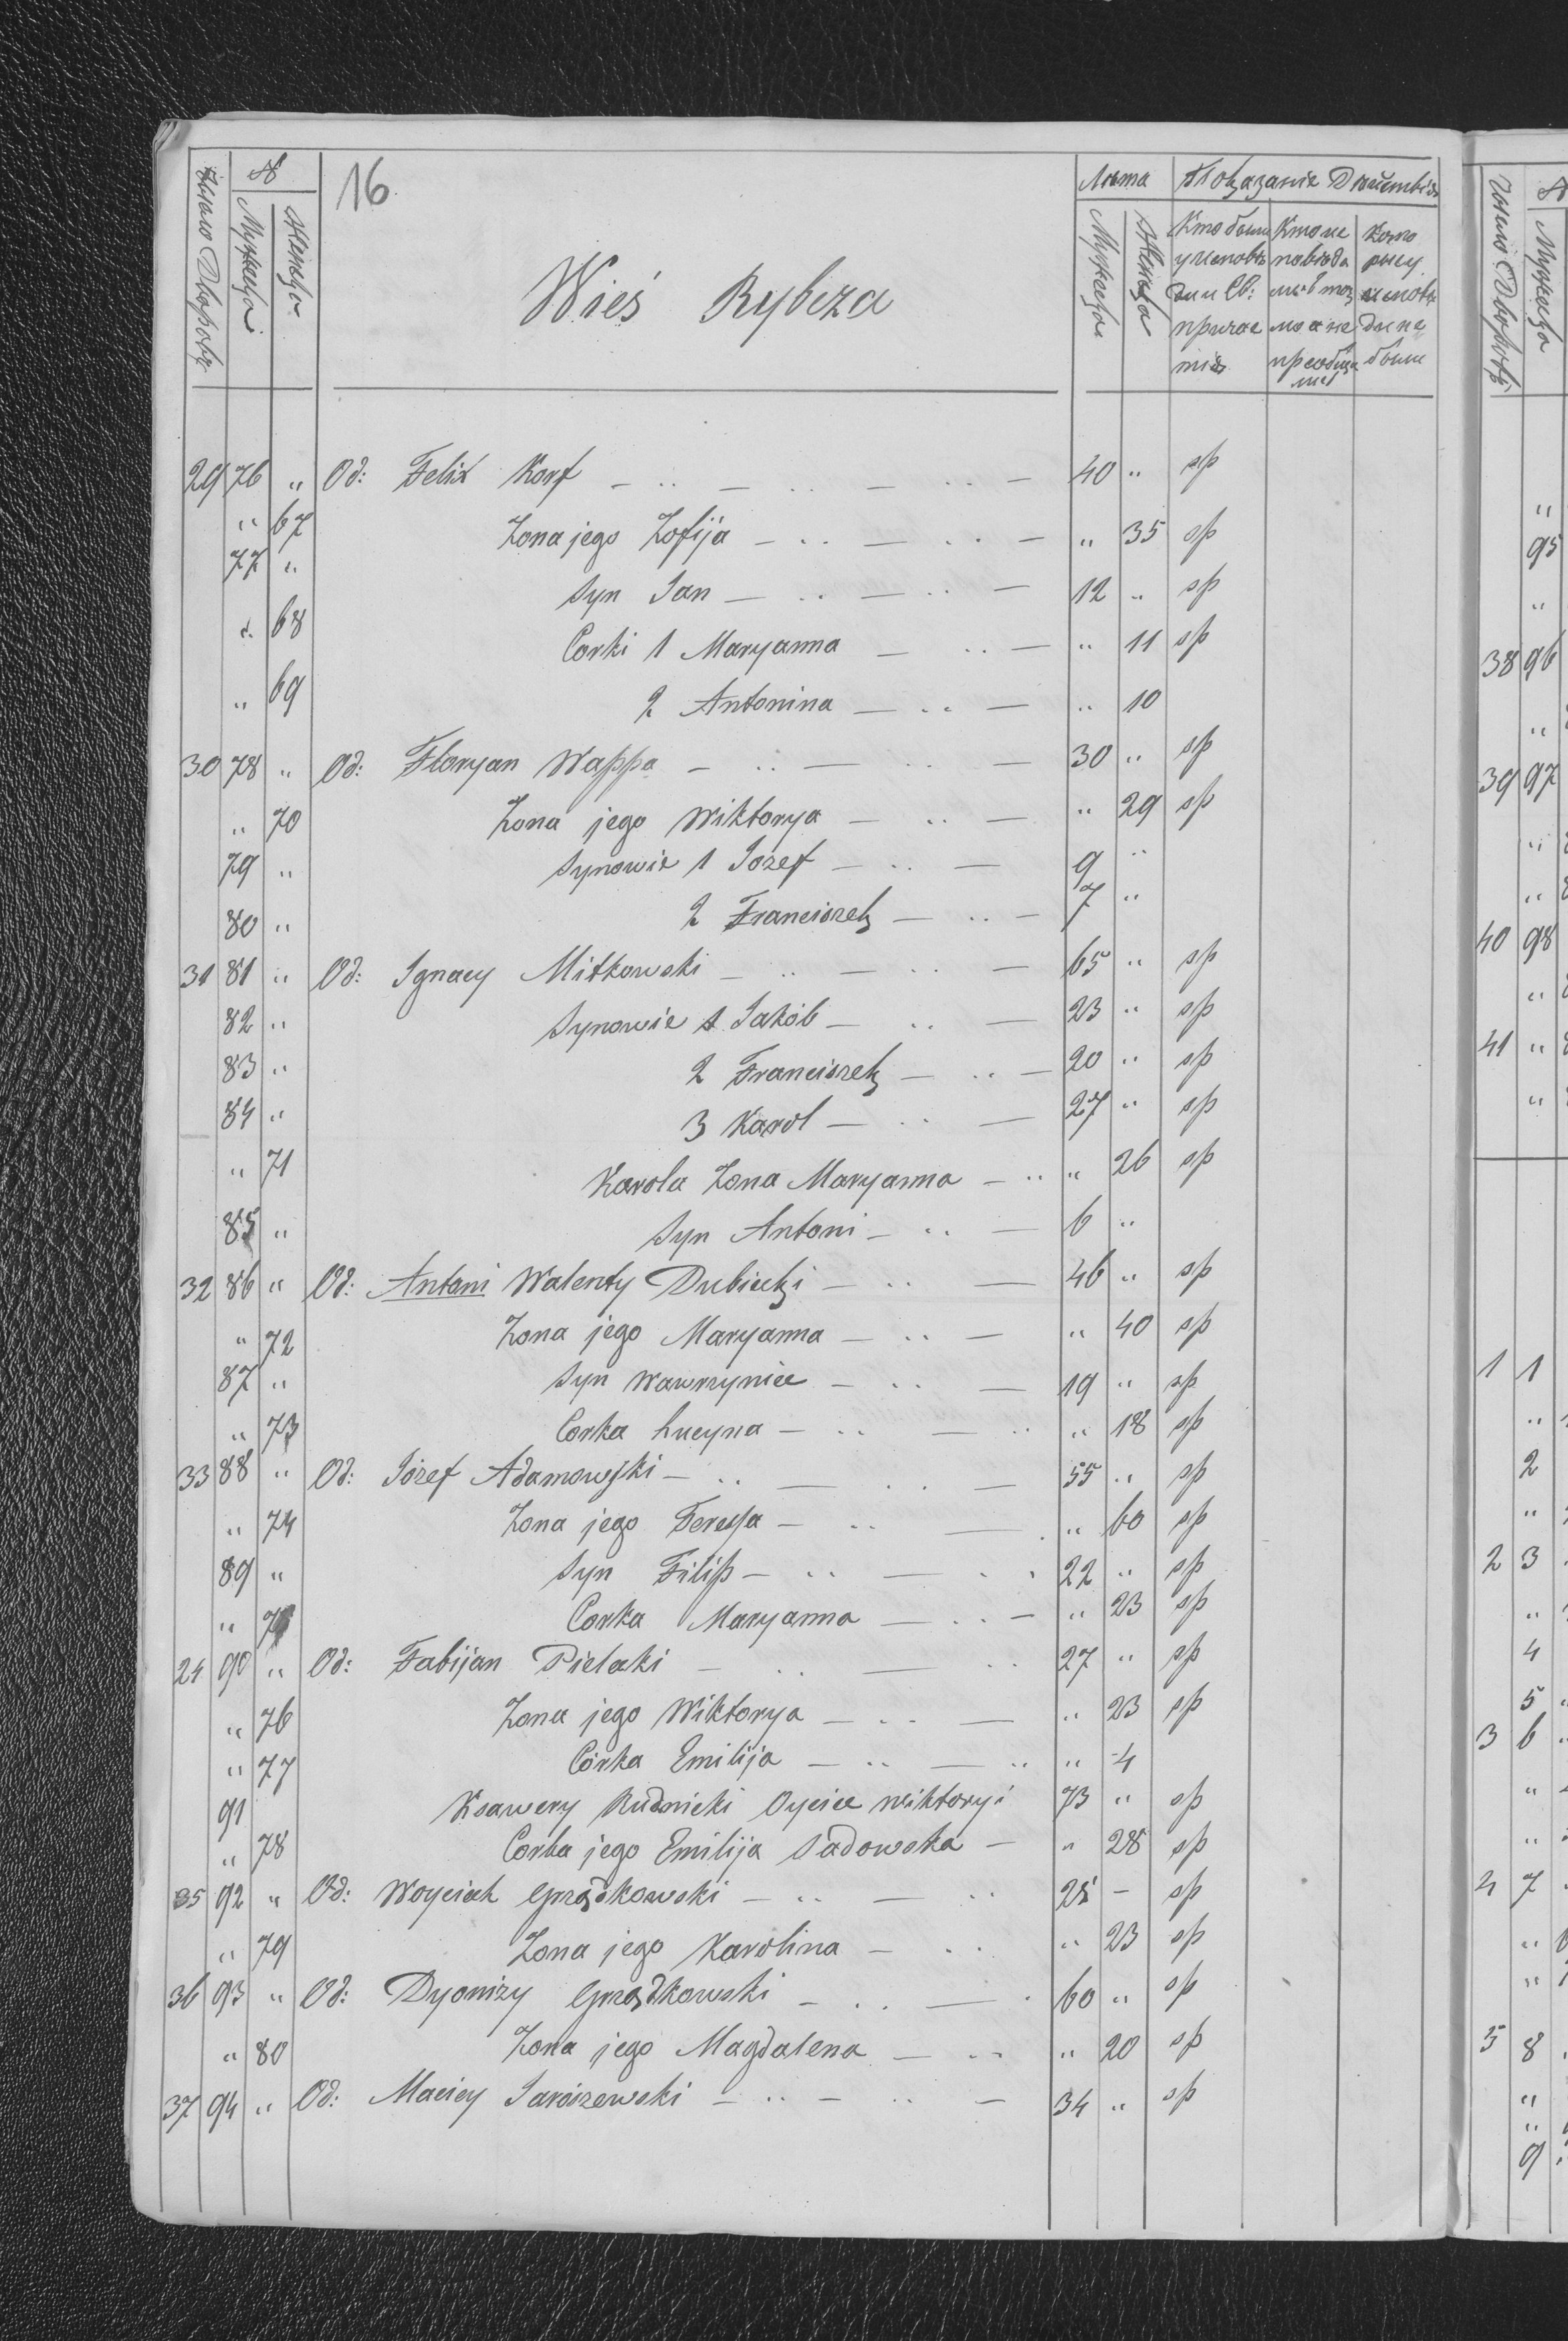 16
Число Дворовъ № Мужеска Женска
Wieś Rybcza
Лѣта Показание Действія
Мужеска Женска
Кто были у исповѣди и Св: причастія
Кто исповѣдался а не преобщался
Которые у исповѣди не были
29 76 " Od: Felix Korf — .. — .. — .. — 40 " sp
" 67 Żona jego Zofija — .. — .. — " 35 sp
77 " Syn Jan — .. — .. — 12 " sp
" 68 Corki 1 Maryanna — .. — " 11 sp
" 69 2 Antonina — .. — " 10
30 78 " Od: Floryan Wappa — .. — .. — 30 " sp
" 70 Żona jego Wiktorya — .. — " 29 sp
79 " Synowie 1 Jozef — .. — 9 "
80 " 2 Franciszek — .. — 7 "
31 81 " Od: Ignacy Mitkowski — .. — .. — 65 " sp
82 " Synowie 1 Jakób — .. — 23 " sp
83 " 2 Franciszek — .. — 20 " sp
84 " 3 Karol — .. — 27 " sp
" 71 Karola Żona Maryanna — .. " 26 sp
85 " Syn Antoni — .. — 6 "
32 86 " Od: Antoni Walenty Dubicki — .. — 46 " sp
" 72 Żona jego Maryanna — .. — " 40 sp
87 " Syn Wawrzyniec — .. — 19 " sp
" 73 Corka Lucyna — .. — .. " 18 sp
33 88 " Od: Józef Adamowski — .. — .. — 55 " sp
" 74 Żona jego Teressa — .. — " 60 sp
89 " Syn Filip — .. — .. 22 " sp
" 75 Corka Maryanna — .. — " 23 sp
24 90 " Od: Fabijan Pielecki — .. — .. 27 " sp
" 76 Żona jego Wiktorya — .. — " 23 sp
" 77 Córka Emilija — .. — .. " 4
91 Ksawery Rudnicki Oyciec Wiktoryi 73 " sp
" 78 Corka jego Emilija Sadowska — " 28 sp
35 92 " Od: Woyciech Grządkowski — .. — .. 25 - sp
" 79 Żona jego Karolina — .. " 23 sp
36 93 " Od: Dyonizy Grządkowski — .. — . 60 " sp
" 80 Żona jego Magdalena — .. " 20 sp
37 94 " Od: Maciey Jaroszewski — .. — .. — 34 " sp
Число Дворовъ № Мужеска
"
95
"
38 96
"
39 97
"
"
40 98
"
41 "
"
1 1
"
2
"
2 3
"
4
5
3 6
"
"
4 7
"
"
5 8
"
"
9